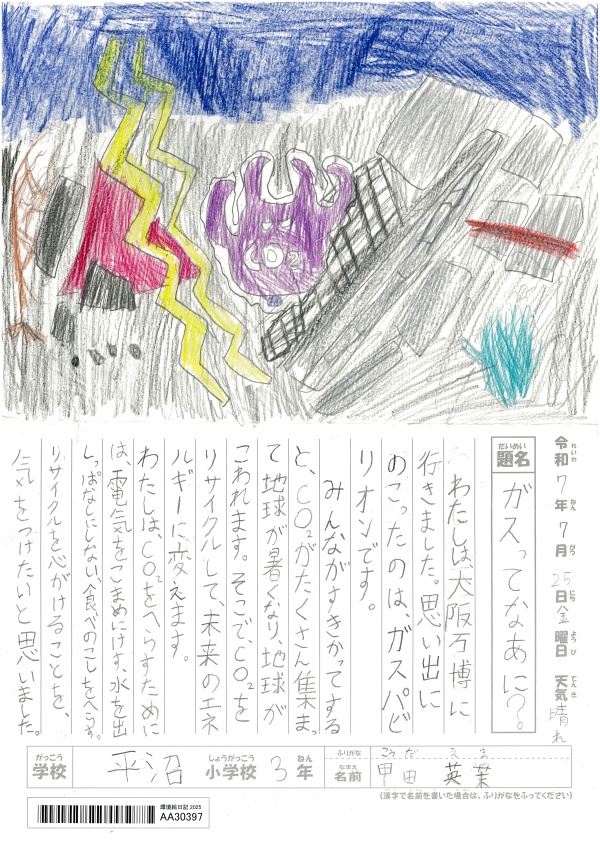 令和7年7月25日金曜日 天気晴れ
れいわ ねん がつ にち ようび てんき
だいめい
題名 ガスってなあに?
わたしは、大阪万博に
行きました。思い出に
のこったのは、ガスパビ
リオンです。
みんながすきかってする
と、CO²がたくさん集まっ
て地球が暑くなり、地球が
こわれます。そこで、CO²を
リサイクルして、未来のエネ
ルギーに変えます。
わたしは、CO²をへらすために
は、電気をこまめにけす、水を出
しっぱなしにしない、食べのこしをへらす、
リサイクルを心がけることを、
気をつけたいと思いました。
がっこう しょうがっこう ねん
学校 平沼 小学校 3年
ふりがな こうだ えま
なまえ
名前 甲田 英茉
(漢字で名前を書いた場合は、ふりがなをふってください)
環境絵日記 2025
AA30397